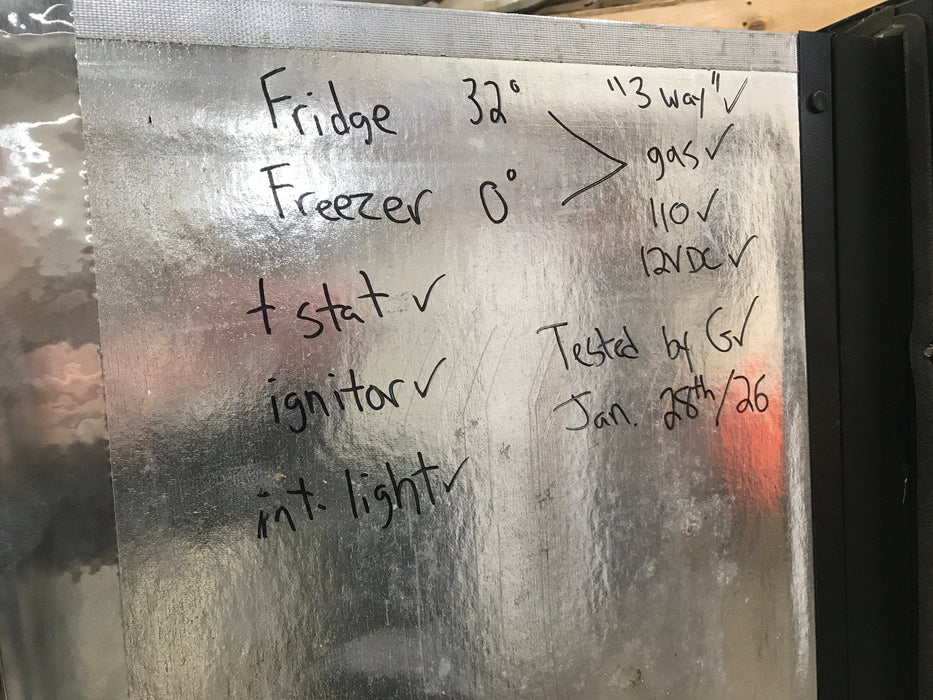 Fridge 32°
Freezer 0°
t stat ✓
ignitor ✓
int. light ✓
"3 way" ✓
gas ✓
110 ✓
12VDC ✓
Tested by G ✓
Jan. 28th/26